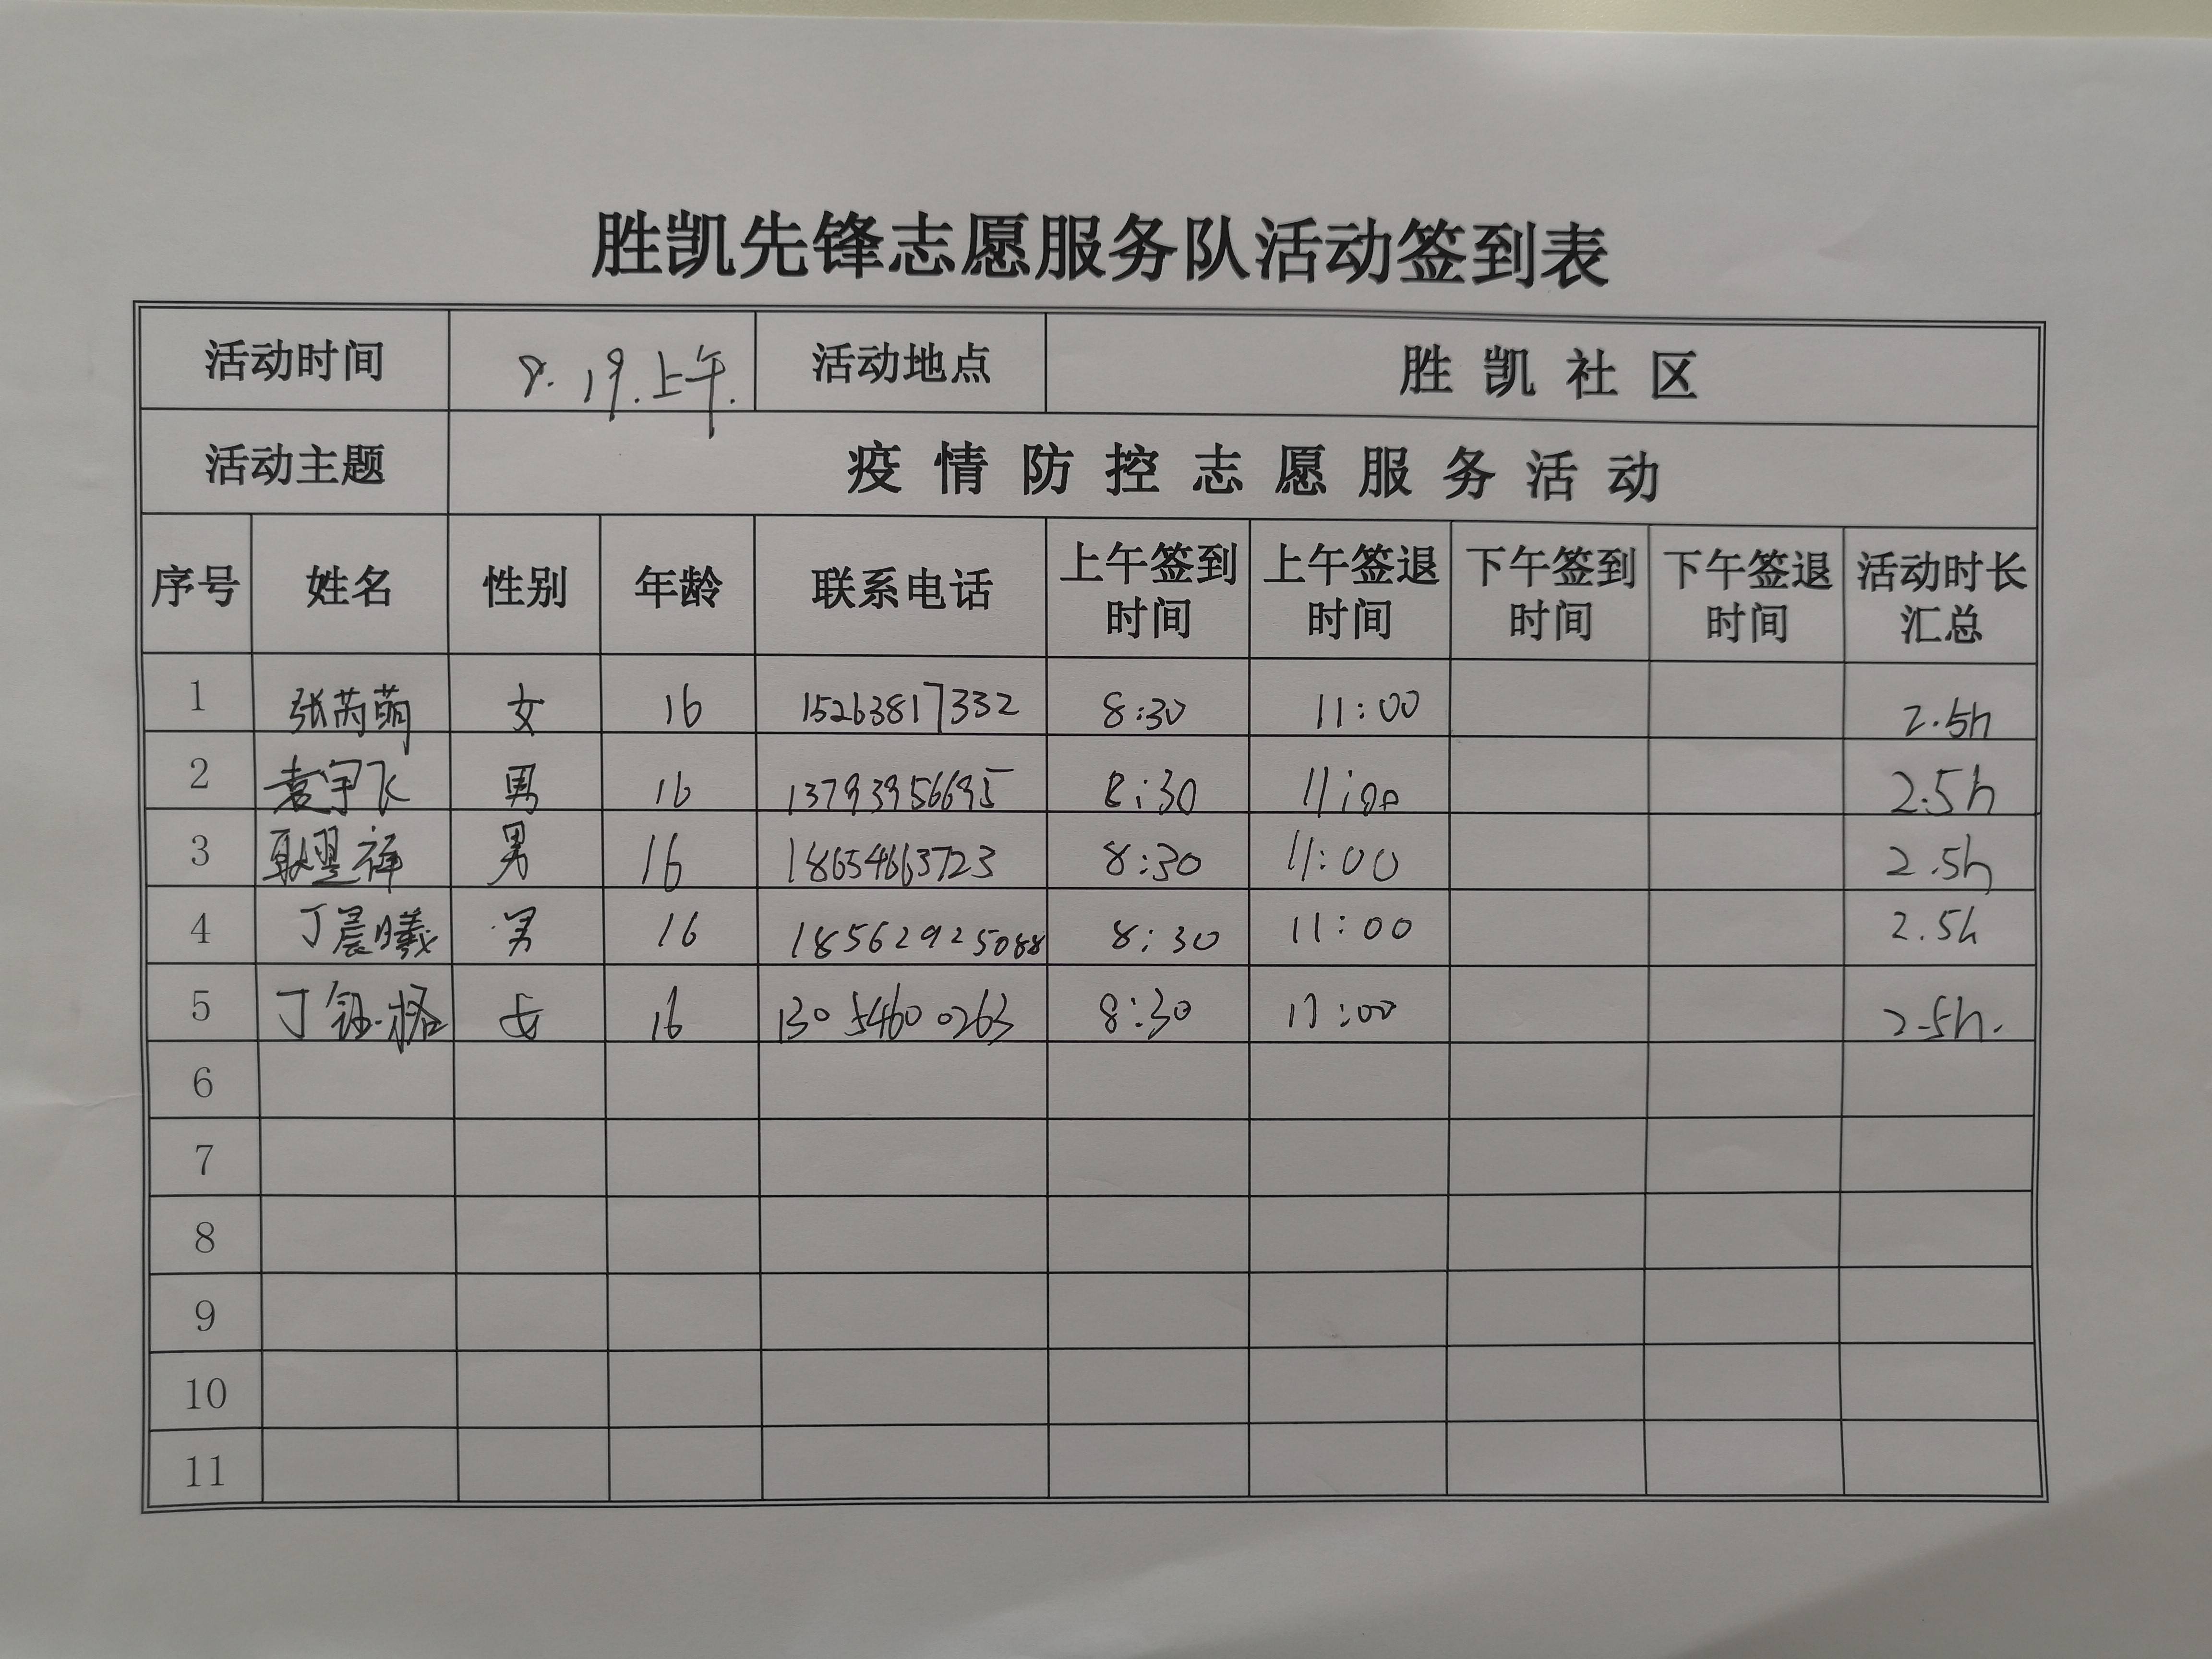 胜凯先锋志愿服务队活动签到表
活动时间 8.19.上午. 活动地点 胜凯社区
活动主题 疫情防控志愿服务活动
序号 姓名 性别 年龄 联系电话 上午签到时间 上午签退时间 下午签到时间 下午签退时间 活动时长汇总
1 张芮萌 女 16 15263817332 8:30 11:00 2.5h
2 袁宇飞 男 16 13793956695 8:30 11:00 2.5h
3 耿翌祥 男 16 18654663723 8:30 11:00 2.5h
4 丁晨曦 男 16 18562925088 8:30 11:00 2.5h
5 丁钰格 女 16 13054600263 8:30 11:00 2.5h.
6
7
8
9
10
11